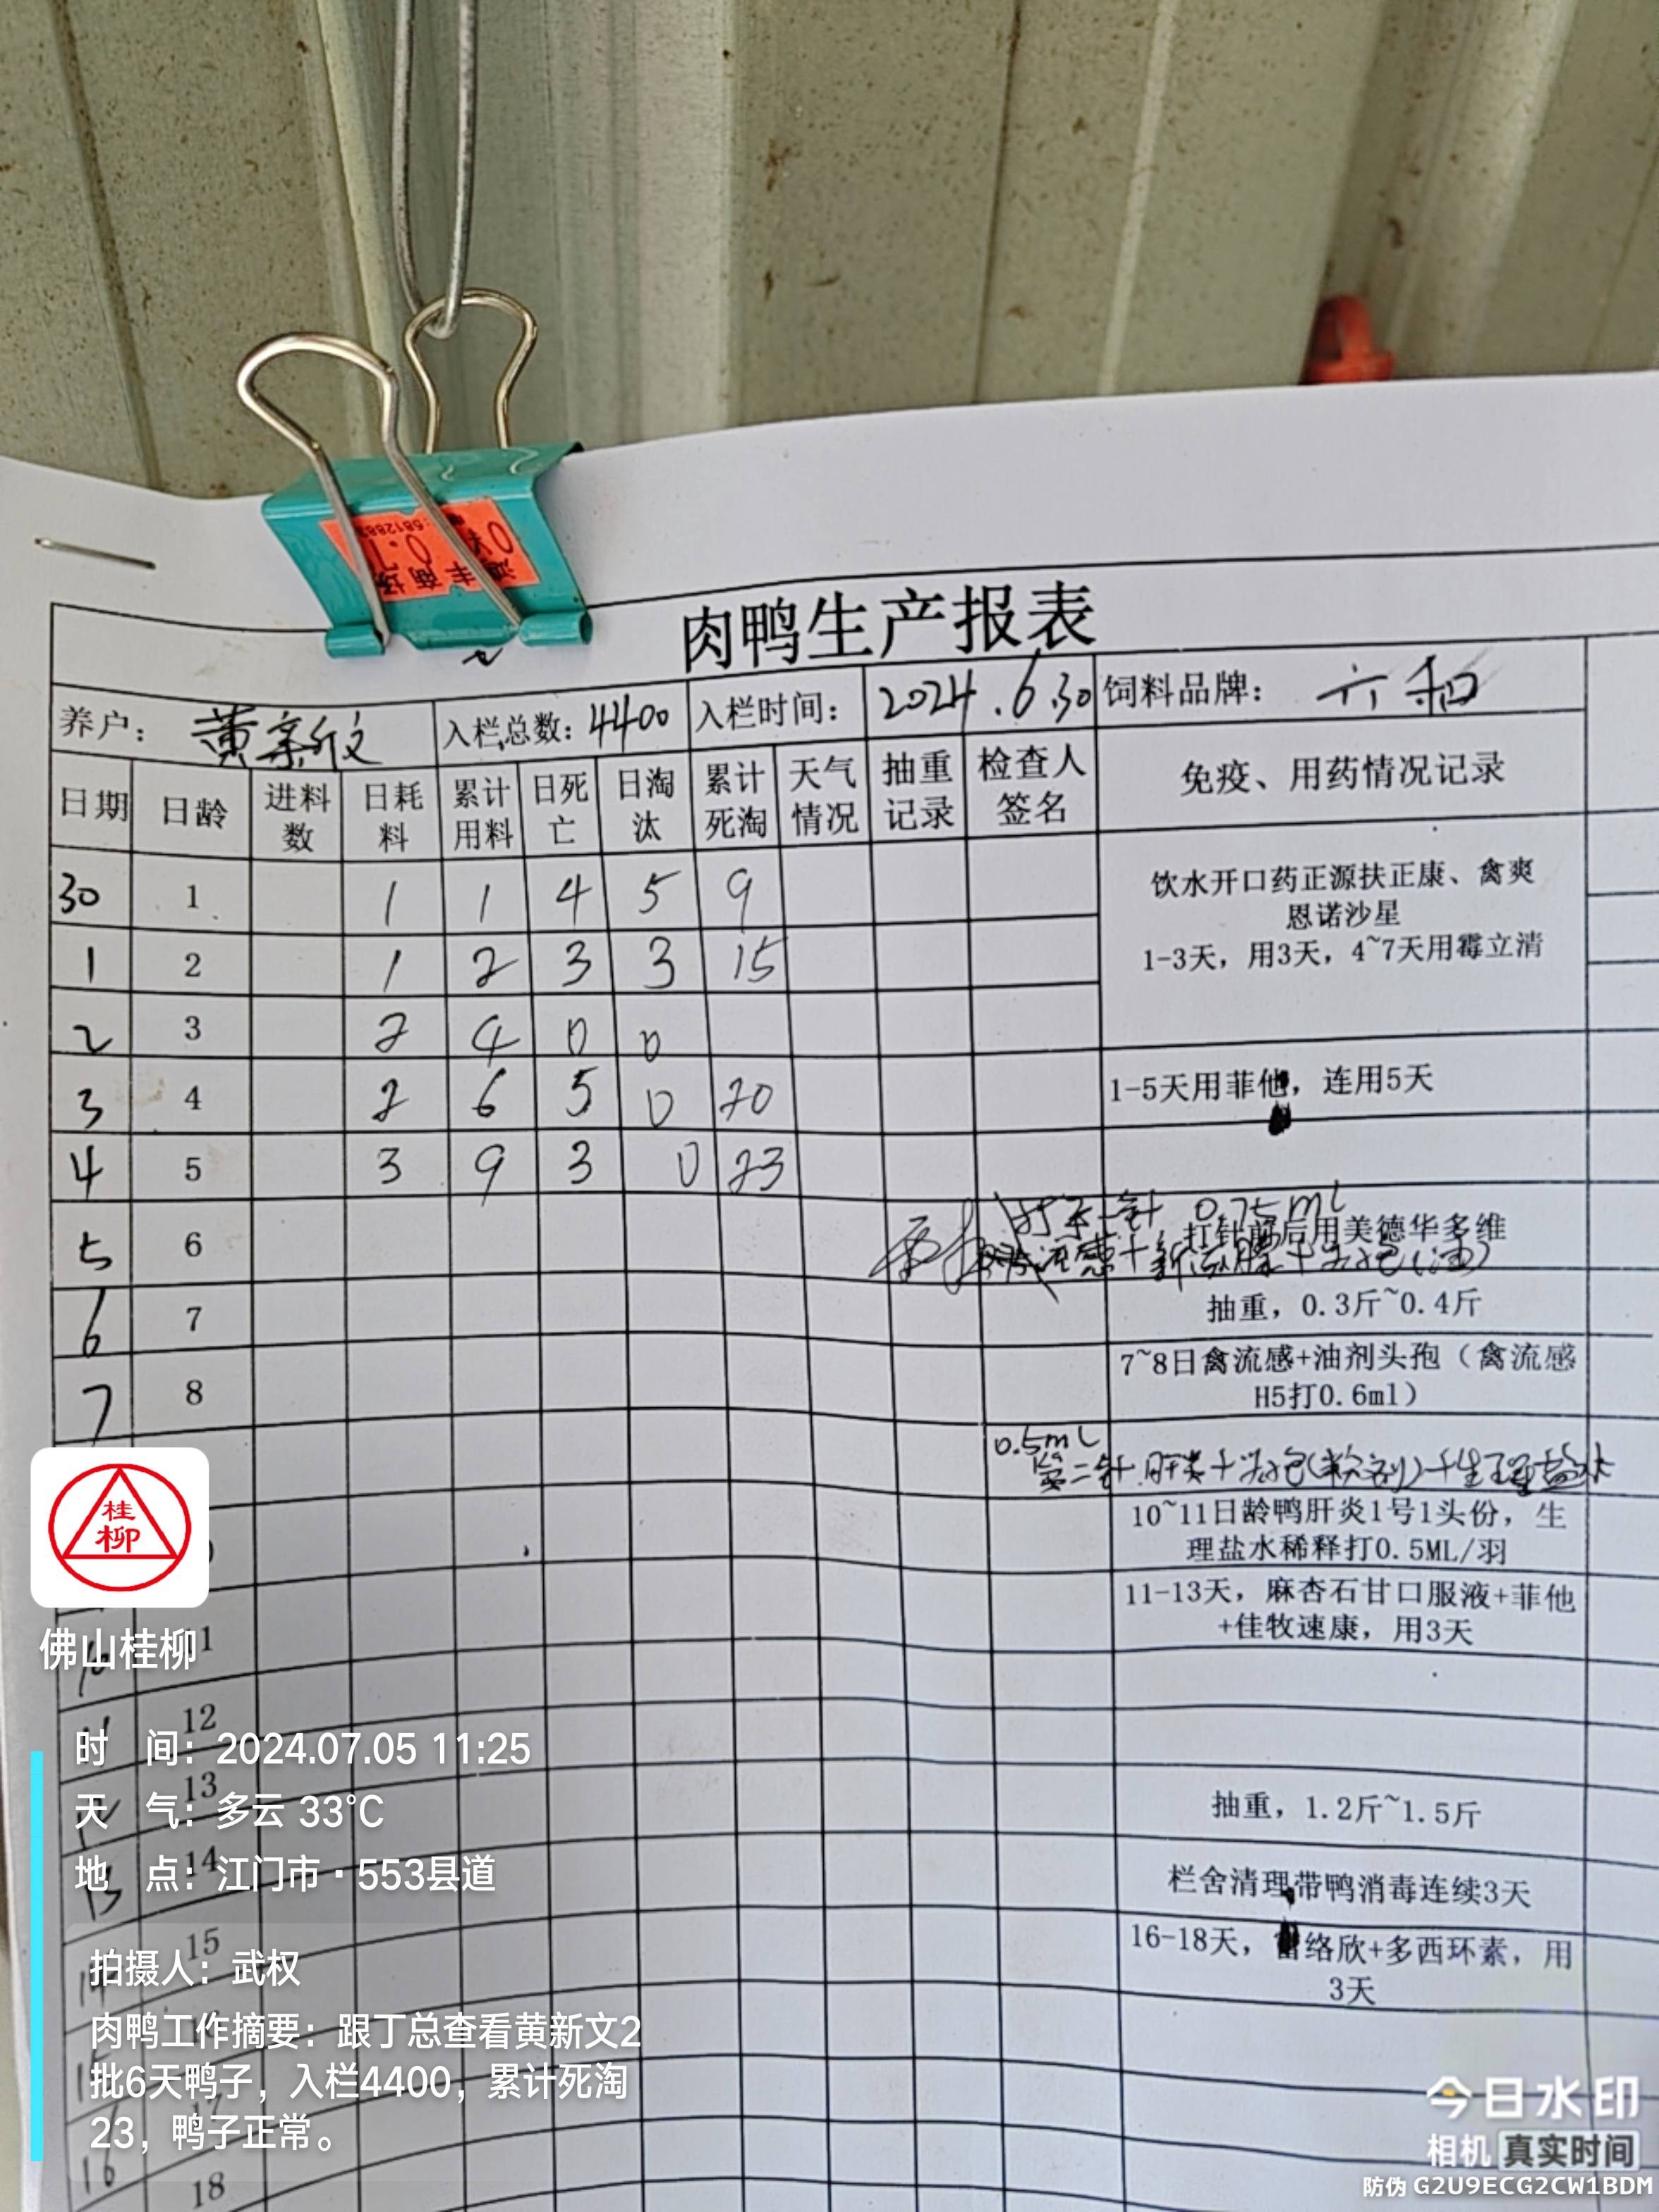 肉鸭生产报表
养户： 黄新文 入栏总数：4400 入栏时间： 2024.6.30 饲料品牌： 六和
日期 日龄 进料数 日耗料 累计用料 日死亡 日淘汰 累计死淘 天气情况 抽重记录 检查人签名 免疫、用药情况记录
30 1 1 1 4 5 9
饮水开口药正源扶正康、禽爽
恩诺沙星
1-3天，用3天，4~7天用霉立清
1 2 1 2 3 3 15
2 3 2 4 0 0
3 4 2 6 5 0 20 1-5天用菲他，连用5天
4 5 3 9 3 0 23
第一针 0.75ml
5 6 打针前后用美德华多维
6 7 抽重，0.3斤~0.4斤
7 8 7~8日禽流感+油剂头孢（禽流感
H5打0.6ml）
0.5ml
第二针 肝炎+头孢(粉剂)+生理盐水
10~11日龄鸭肝炎1号1头份，生
理盐水稀释打0.5ML/羽
11-13天，麻杏石甘口服液+菲他
+佳牧速康，用3天
10 11
11 12
12 13 抽重，1.2斤~1.5斤
13 14 栏舍清理带鸭消毒连续3天
14 15 16-18天，络欣+多西环素，用
3天
15
17
16 18
桂
柳
佛山桂柳
时 间：2024.07.05 11:25
天 气：多云 33℃
地 点：江门市·553县道
拍摄人：武权
肉鸭工作摘要：跟丁总查看黄新文2
批6天鸭子，入栏4400，累计死淘
23，鸭子正常。
今日水印
相机 真实时间
防伪 G2U9ECG2CW1BDM